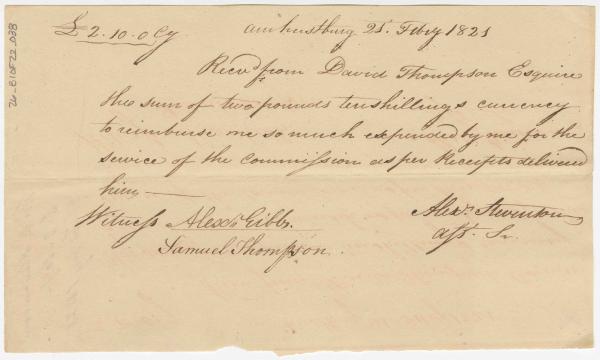 £ 2.10.0 Cy
Amherstburg 21. Feby 1821
Recvd. from David Thompson Esquire
the sum of two pounds ten shillings currency
to reimburse me so much expended by me for the
service of the Commission as per Receipts delivered
him
Alexr. Stevenson
Asst. Sr.
Witness Alexr. Gibb.
Samuel Thompson.